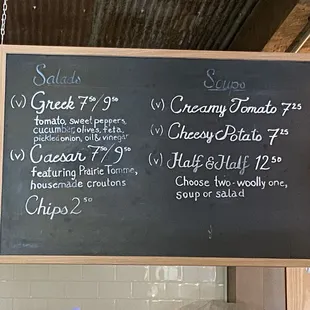 Salads
(v) Greek 7⁵⁰/9⁵⁰
tomato, sweet peppers,
cucumber, olives, feta,
pickled onion, oil & vinegar
(v) Caesar 7⁵⁰/9⁵⁰
featuring Prairie Tomme,
housemade croutons
Chips 2⁵⁰
Soups
(v) Creamy Tomato 7²⁵
(v) Cheesy Potato 7²⁵
(v) Half & Half 12⁵⁰
Choose two-woolly one,
soup or salad